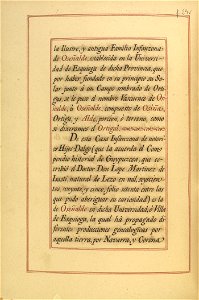 la Ilustre, y antigua Familia Infanzona
de Ozaalde, establecida en la Universi-
dad de Ezquioga de dicha Provincia, que
por haber fundado en su principio su So-
lar junto á un Campo sembrado de Orti-
gas, se le puso el nombre Vazcuence de Oz-
aalde, ó Ozaalde, compuesto de
Ortiga, y Alde, porcion, ó terreno, como
si dixeramos el Ortigal
De esta Casa Infanzona de noto-
rios Hijos Dalgo (que la acuerda el Com-
pendio historial de Guypuzcoa, que es-
cribió el Doctor Don Lope Martinez de
Isasti natural de Lezo en mil, seiscien-
tos, veynte, y cinco, folio setenta entre las
que pudo aberiguar su curiosidad) es la
de en dicha Universidad, ó Villa
de Ezquioga, la qual há propagado di-
ferentes producciones genealogicas por
aquella tierra, por Navarra, y Corona